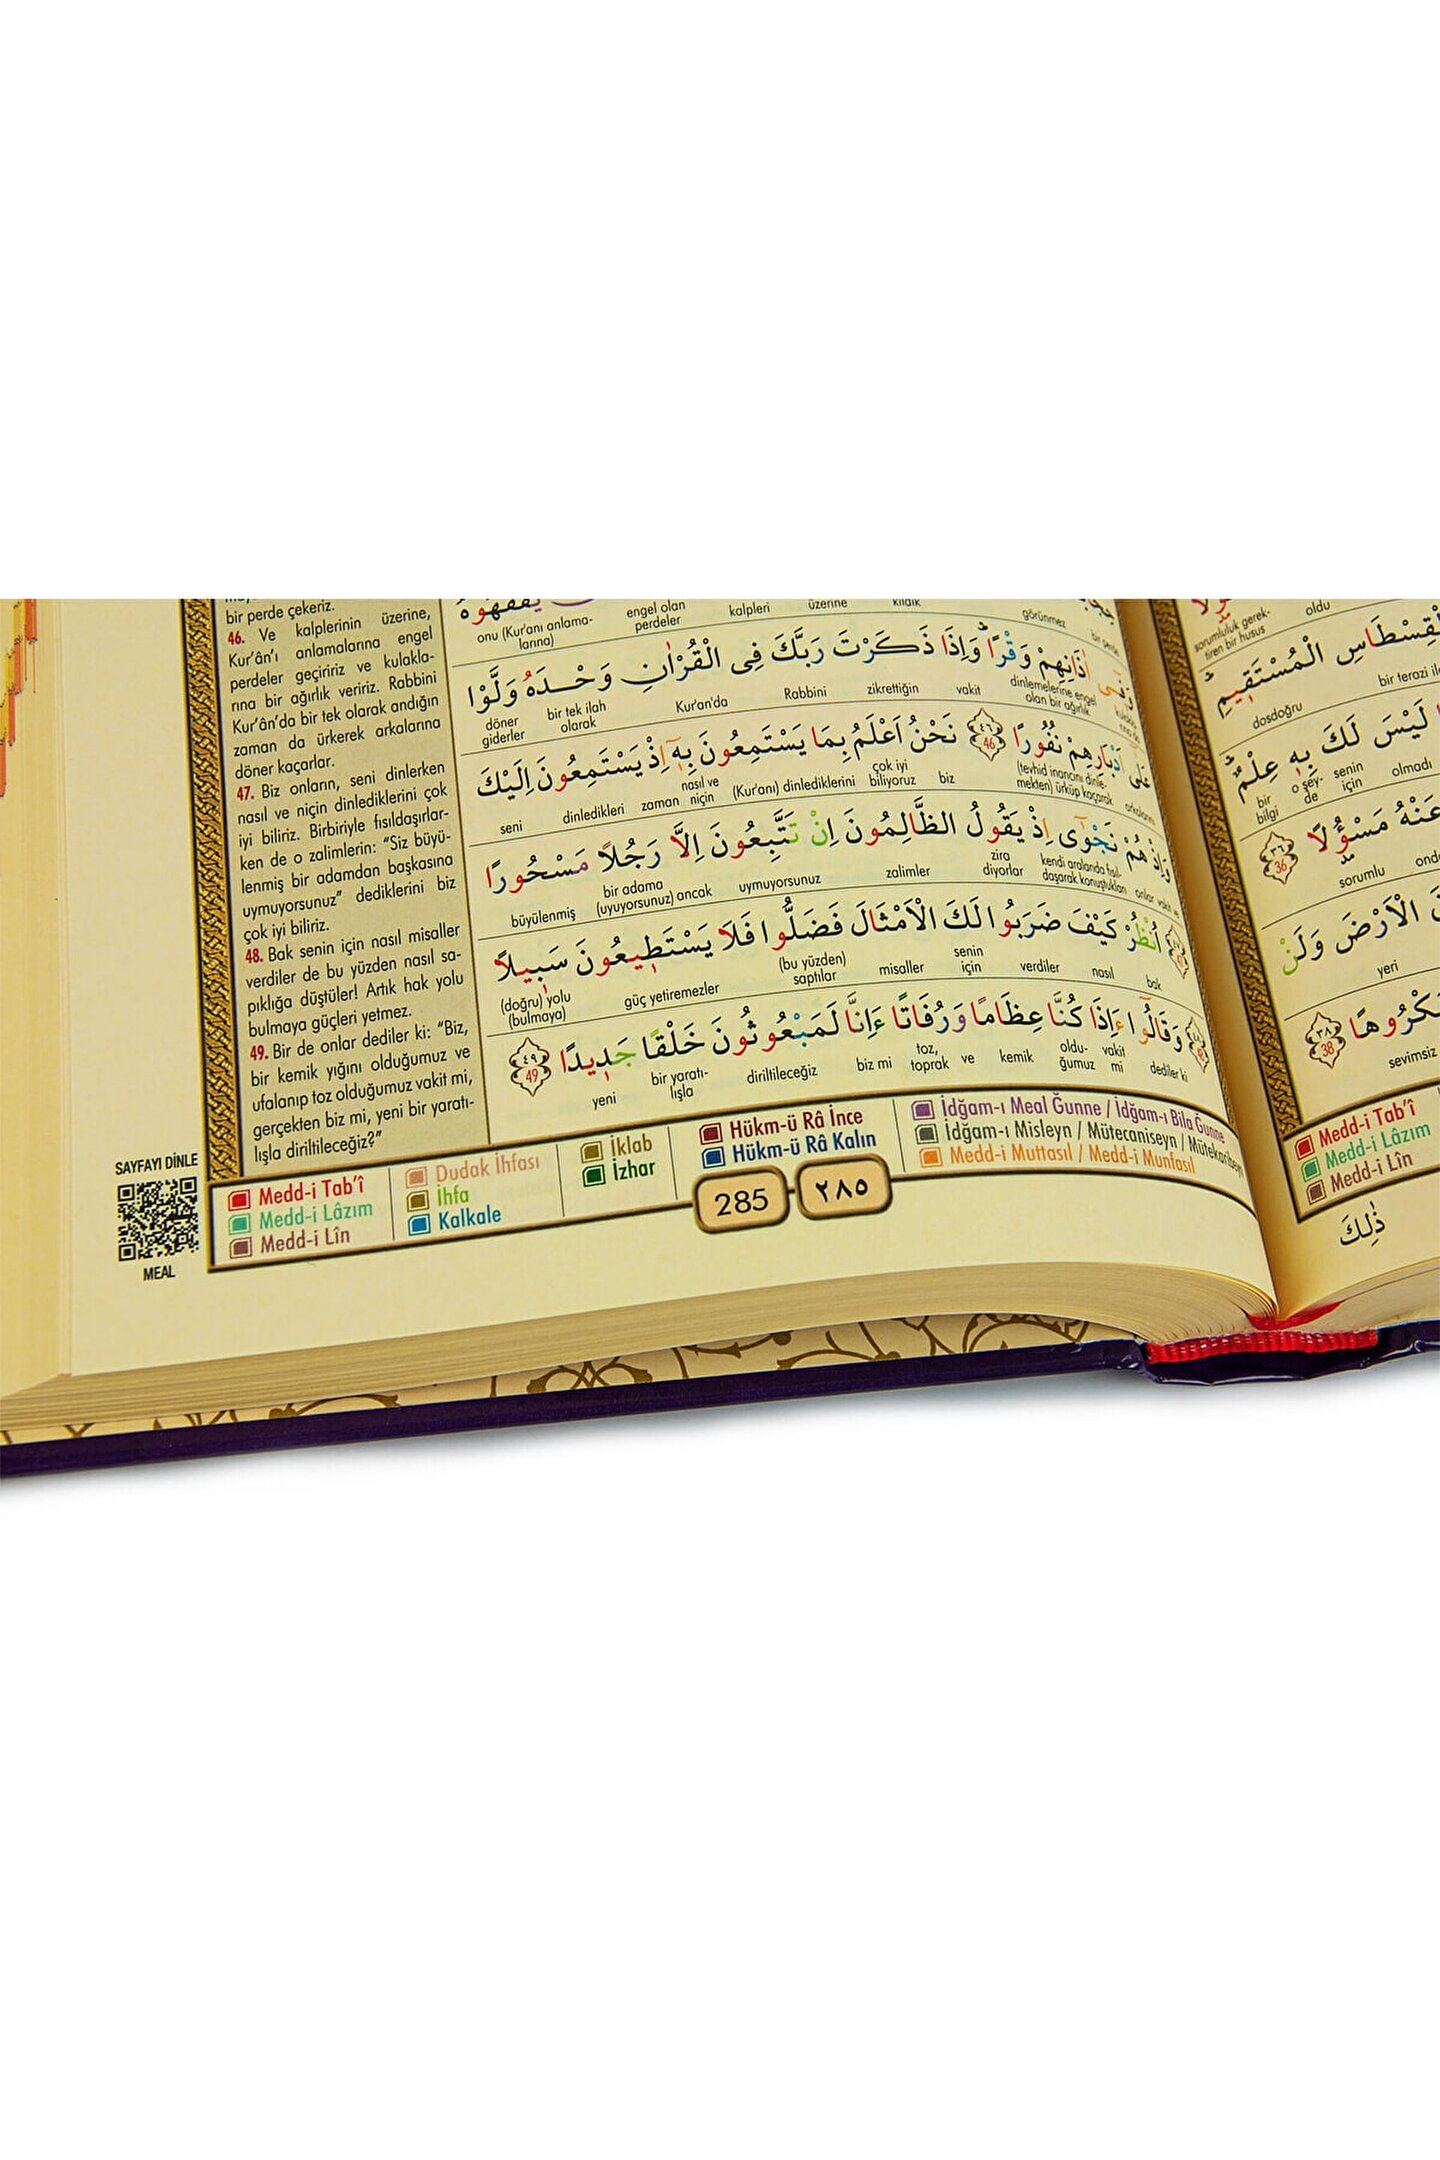 bir perde çekeriz.
46. Ve kalplerinin üzerine,
Kur'ân'ı anlamalarına engel
perdeler geçiririz ve kulakla-
rına bir ağırlık veririz. Rabbini
Kur'ân'da bir tek olarak andığın
zaman da ürkerek arkalarına
döner kaçarlar.
47. Biz onların, seni dinlerken
nasıl ve niçin dinlediklerini çok
iyi biliriz. Birbiriyle fısıldaşırlar-
ken de o zalimlerin: “Siz büyü-
lenmiş bir adamdan başkasına
uymuyorsunuz” dediklerini biz
çok iyi biliriz.
48. Bak senin için nasıl misaller
verdiler de bu yüzden nasıl sa-
pıklığa düştüler! Artık hak yolu
bulmaya güçleri yetmez.
49. Bir de onlar dediler ki: “Biz,
bir kemik yığını olduğumuz ve
ufalanıp toz olduğumuz vakit mi,
gerçekten biz mi, yeni bir yaratı-
lışla diriltileceğiz?”
يَفْقَهُوهُ
onu (Kur'anı anlama-
larına)
engel olan
perdeler
kalpleri
üzerine
kıldık
görünmez
bir perde
وَفٖٓي اٰذَانِهِمْ وَقْراًؕ وَاِذَا ذَكَرْتَ رَبَّكَ فِي الْقُرْاٰنِ وَحْدَهُ وَلَّوْا
döner
giderler
bir tek ilah
olarak
Kur'an'da
Rabbini
zikrettiğin
vakit
dinlemelerine engel
olan bir ağırlık
عَلٰٓى اَدْبَارِهِمْ نُفُورًا ٤٦ 46 نَحْنُ اَعْلَمُ بِمَا يَسْتَمِعُونَ بِهٖٓ اِذْ يَسْتَمِعُونَ اِلَيْكَ
seni
dinledikleri
zaman
nasıl ve
niçin
(Kur'anı) dinlediklerini
çok iyi
biliyoruz
biz
(tevhid inancını dinle-
mekten) ürküp kaçarak
arkalarını
وَاِذْ هُمْ نَجْوٰٓى اِذْ يَقُولُ الظَّالِمُونَ اِنْ تَتَّبِعُونَ اِلَّا رَجُلًا مَسْحُورًا
büyülenmiş
bir adama
(uyuyorsunuz) ancak
uymuyorsunuz
zalimler
zira
diyorlar
kendi aralarında fısıl-
daşarak konuştukları
onlar
vakit
ve
اُنْظُرْ كَيْفَ ضَرَبُوا لَكَ الْاَمْثَالَ فَضَلُّوا فَلَا يَسْتَطٖيعُونَ سَبٖيلًا
(doğru) yolu
(bulmaya)
güç yetiremezler
(bu yüzden)
saptılar
misaller
senin
için
verdiler
nasıl
bak
وَقَالُٓوا ءَاِذَا كُنَّا عِظَامًا وَرُفَاتًا ءَاِنَّا لَمَبْعُوثُونَ خَلْقًا جَدٖيدًا ٤٩ 49
yeni
bir yaratı-
lışla
diriltileceğiz
biz mi
toz,
toprak
ve
kemik
oldu-
ğumuz
vakit
mi
dediler ki
SAYFAYI DİNLE
MEAL
Medd-i Tab'î
Medd-i Lâzım
Medd-i Lîn
Dudak İhfası
İhfa
Kalkale
İklab
İzhar
Hükm-ü Râ İnce
Hükm-ü Râ Kalın
İdğam-ı Meal Ğunne / İdğam-ı Bila Ğunne
İdğam-ı Misleyn / Mütecaniseyn / Mütekaribeyn
Medd-i Muttasıl / Medd-i Munfasıl
285 ٢٨٥
sorumluluk gerek-
tiren bir husus
oldu
الْمُسْتَقٖيمِؕ
dosdoğru
لَيْسَ لَكَ بِهٖ عِلْمٌؕ
bir
bilgi
o şey-
de
senin
için
olmadı
عَنْهُ مَسْؤُلًا ٣٦ 36
sorumlu
الْاَرْضَ وَلَنْ
yeri
٣٨ 38
sevimsiz
Medd-i Tab'î
Medd-i Lâzım
Medd-i Lîn
ذٰلِكَ